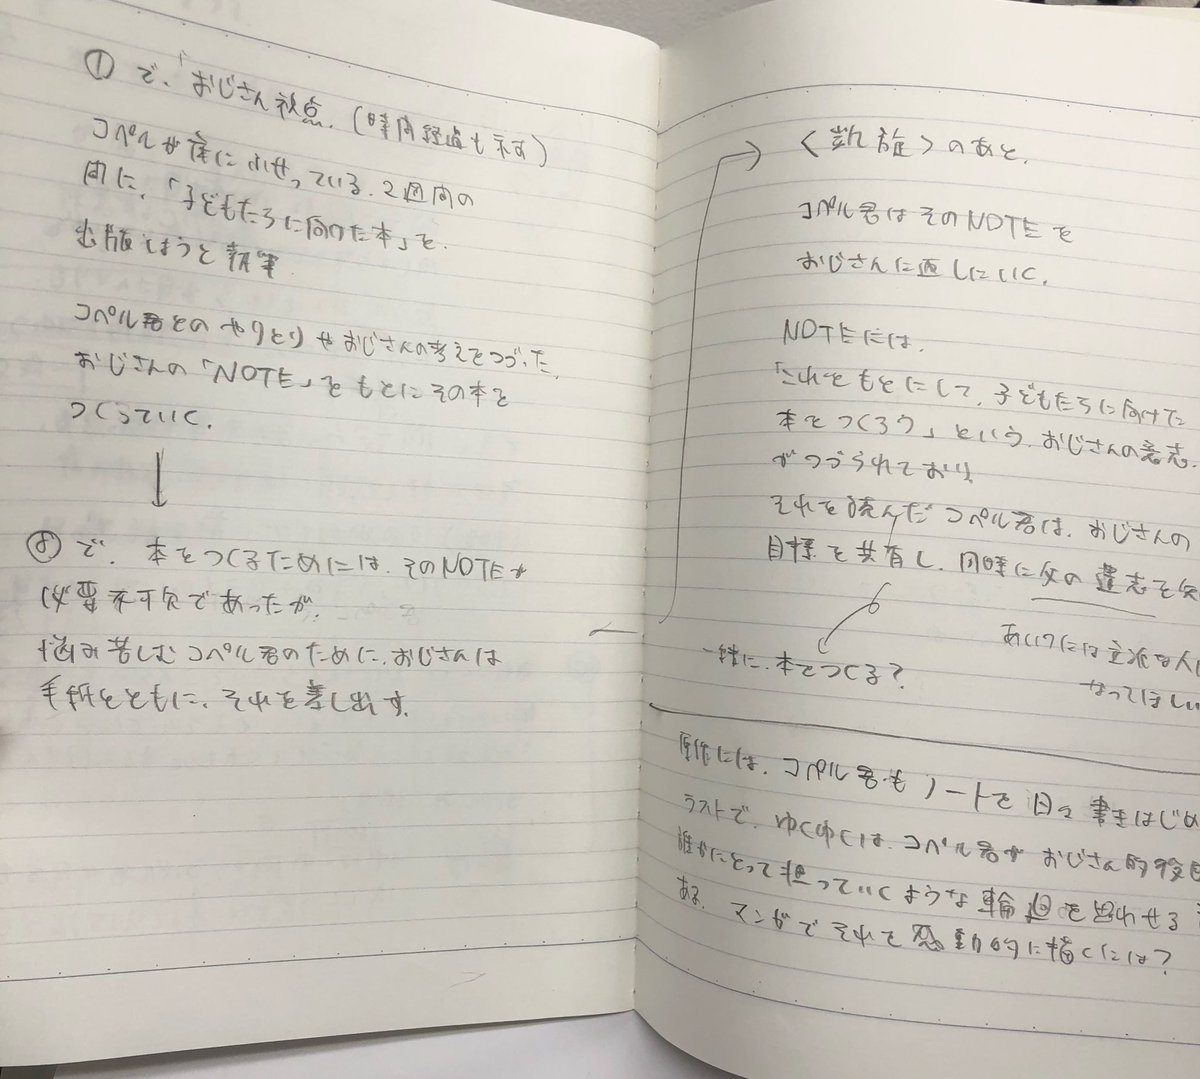 ① で、「おじさん視点.（時間経過も示す）
コペルが床にふせっている.2週間の
間に、「子どもたちに向けた本」を.
出版しようと執筆
コペル君とのやりとりやおじさんの考えをつづった.
おじさんの「NOTE」をもとにその本を
つくっていく.
↓
⑧で、本をつくるためには、そのNOTEが
必要不可欠であったが.
悩み苦しむコペル君のために、おじさんは
手紙とともに、それを差し出す.
→ 〈凱旋〉のあと.
コペル君はそのNOTEを
おじさんに返しにいく.
NOTEには.
「これをもとにして、子どもたちに向けた
本をつくろう」という、おじさんの意志.
がつづられており、
それを読んだコペル君は、おじさんの
目標を共有し、同時に父の遺志を
あいつには立派な人に
なってほしい
一緒に、本をつくる?
原作には、コペル君もノートを日々書きはじめ
ラストで、ゆくゆくは、コペル君がおじさん的役目
誰かにとって担っていくような輪廻を思わせる
ある. マンガでそれを感動的に描くには?